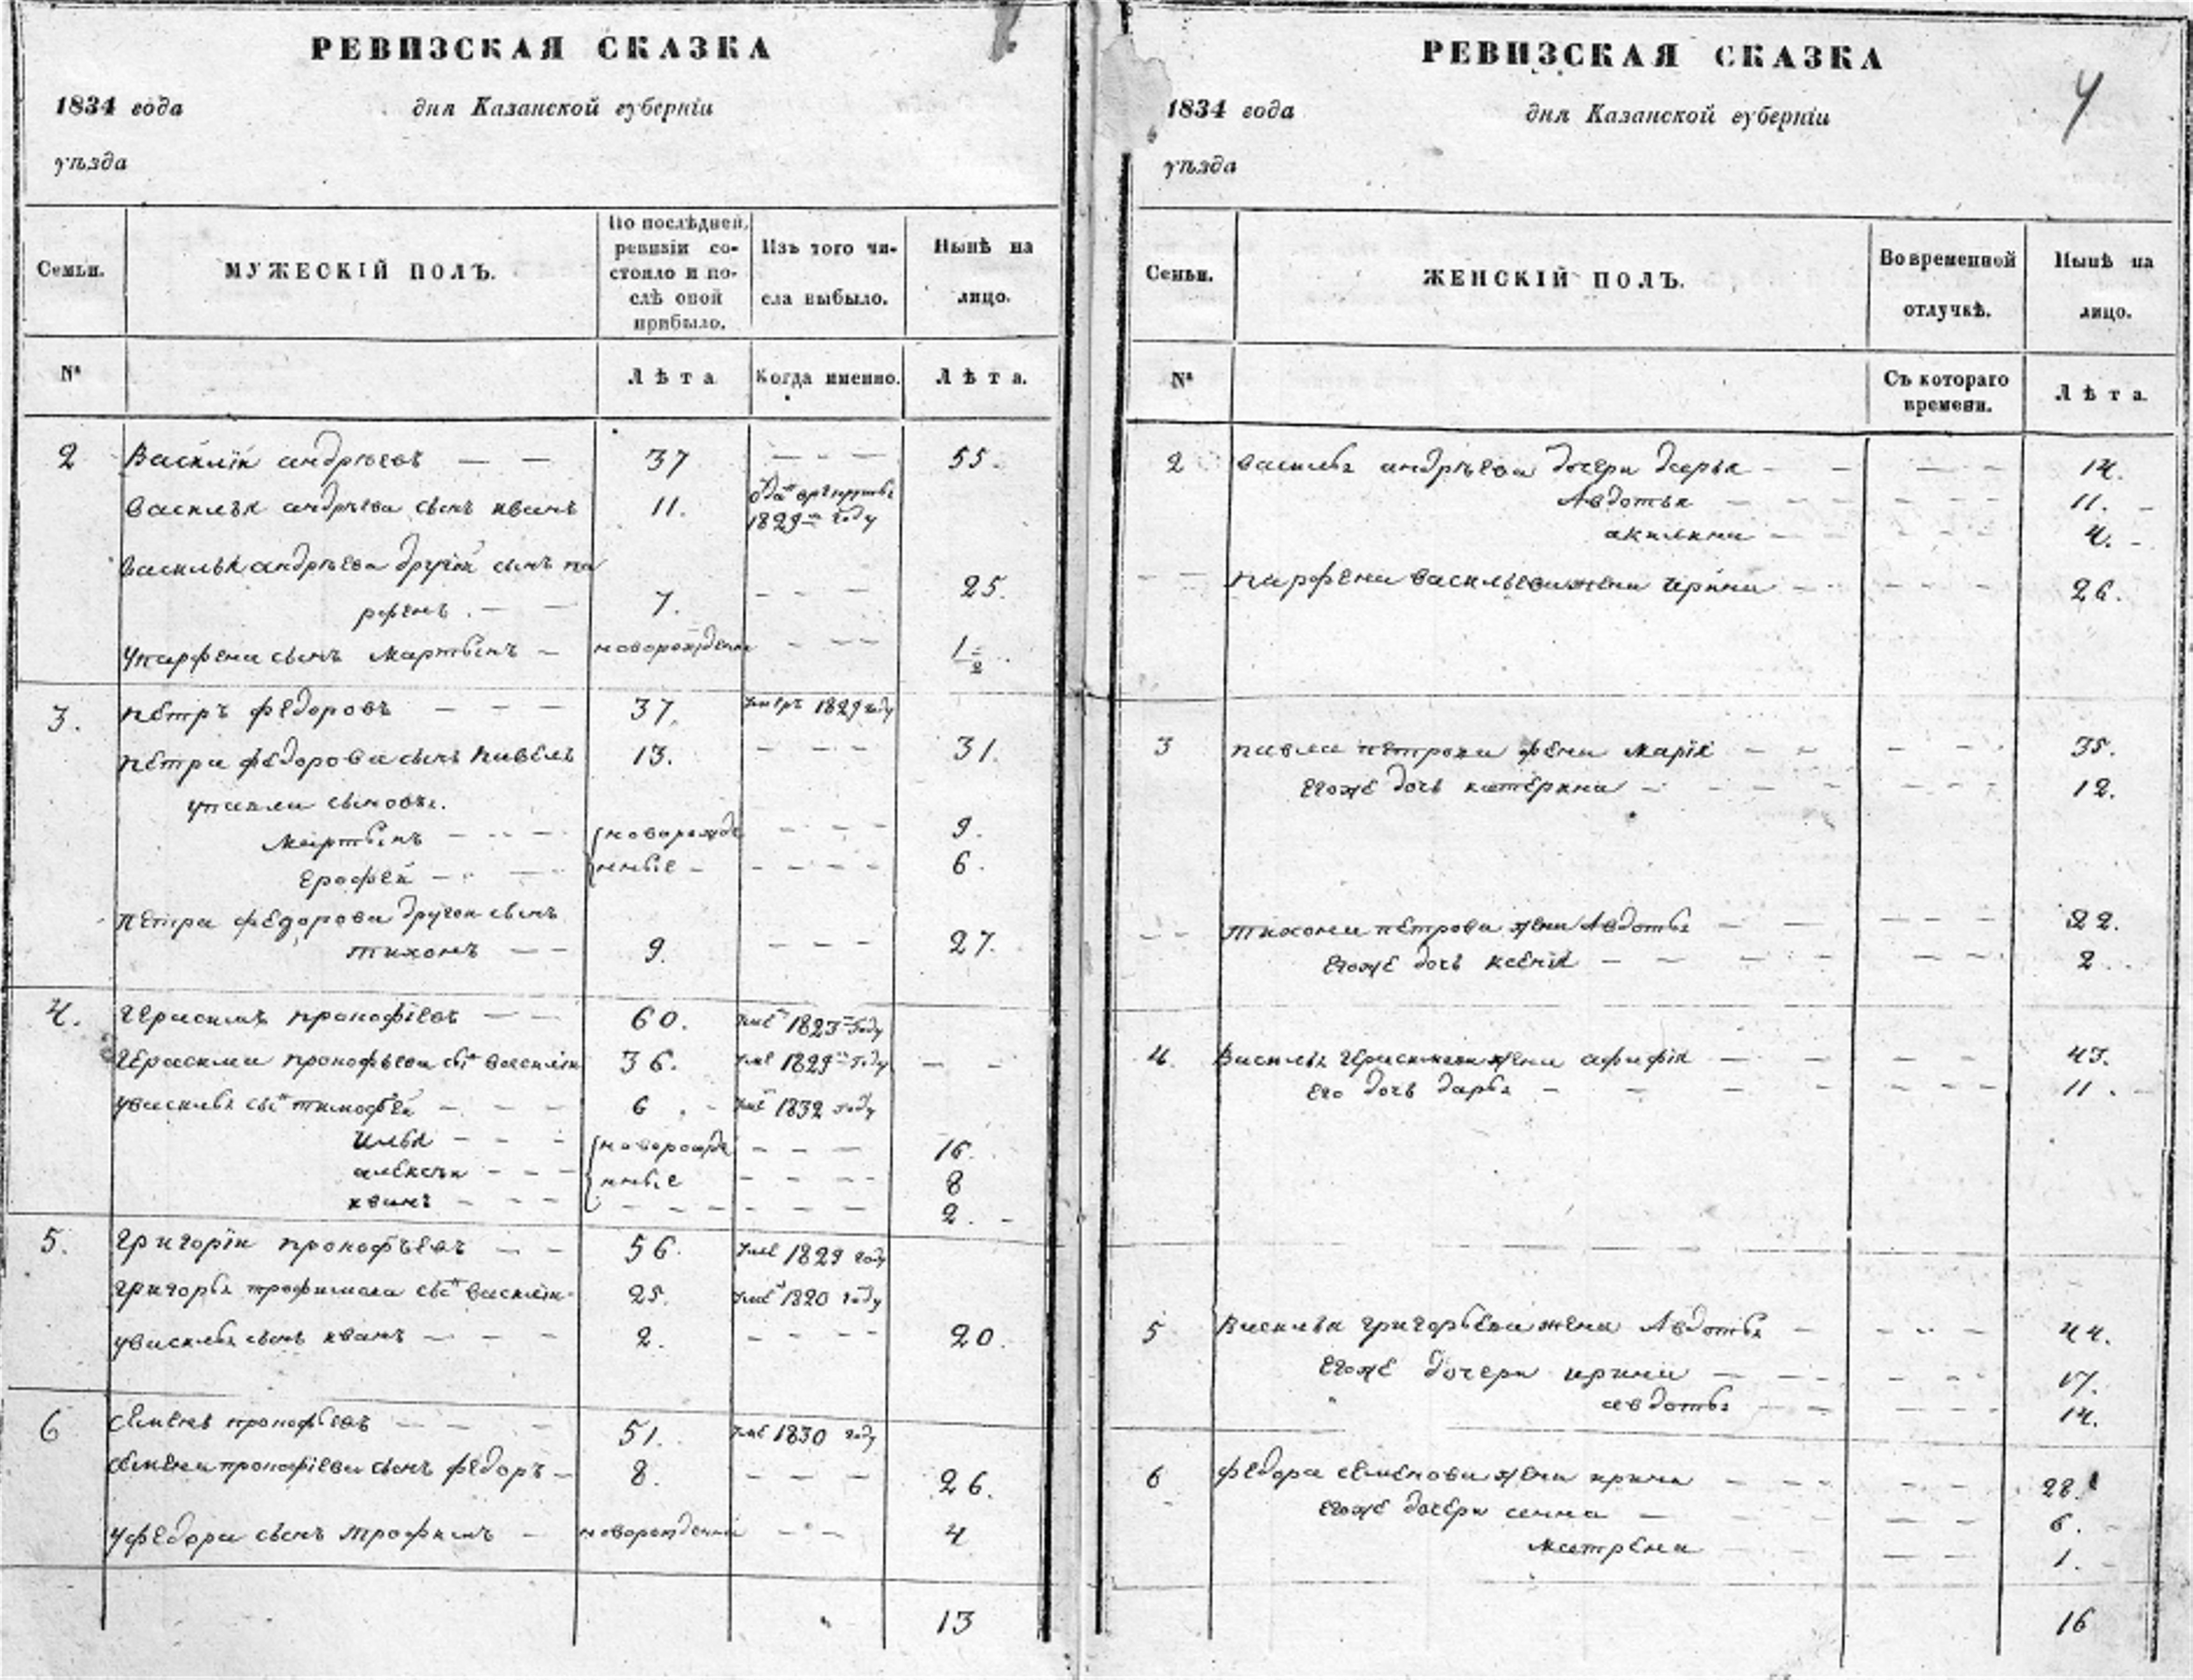 РЕВИЗСКАЯ СКАЗКА
1834 года дня Казанской губерніи
уѣзда
Семьи. МУЖЕСКІЙ ПОЛЪ. По послѣдней ревизіи состояло и послѣ оной прибыло. Изъ того числа выбыло. Нынѣ на лицо.
№ Лѣта Когда именно. Лѣта.
2 Василій андрѣевъ — — 37 — — — 55.
Василья андрѣева сынъ иванъ 11. 1829 году
Василья андрѣева другій сынъ па
рфенъ. — — 7. — — — 25.
у парфена сынъ мартынъ — новорожденн — — — 1 1/2
3. петръ федоровъ — — — 37. умеръ 1829 году
петра федорова сынъ павелъ 13. — — — 31.
у павла сыновья.
мартынъ — — — новорожде — — — 9.
ерофей — — нные — — — — — 6.
петра федорова другои сынъ
тихонъ — — 9. — — — 27.
4. герасимъ прокофіевъ — — 60. уме 1823 году
герасима прокофьева сы василіи 36. уме 1829 году — —
у василья сы тимофей — — — 6. — уме 1832 году
илья — — — новорожде — — — 16.
алексѣи — — — нные — — — — 8
иванъ — — — — — — — — — — 2. —
5. григоріи прокофьевъ — — 56. уме 1829 году
григорья трофимова сы василіи 25. уме 1820 году
у василья сынъ иванъ — — — 2. — — — — 20.
6 семенъ прокофьевъ — — — 51. уме 1830 году
семена прокофіева сынъ федоръ — 8. — — — 26.
у федора сынъ трофимъ — новорожденны — — 4
13
РЕВИЗСКАЯ СКАЗКА
1834 года дня Казанской губерніи 4
уѣзда
Семьи. ЖЕНСКІЙ ПОЛЪ. Во временной отлучкѣ. Нынѣ на лицо.
№ Съ котораго времени. Лѣта.
2 василья андрѣева дочери дарья — — — — — 14.
Авдотья — — — — — — — 11. —
акилина — — — — — 4. —
— — парфена васильева жена ирина — — — — 26.
3 павла петрова жена марія — — — — — 35.
егоже дочь катерина — — — — — — — 12.
— — тихона петрова жена Авдотья — — — — — — 22.
егоже дочь ксенія — — — — — — — 2.
4. Василья герасимова жена афафія — — — — — 43.
его дочь дарья — — — — — — — 11. —
5 Василья григорьева жена Авдотья — — — — 44.
егоже дочери ирина — — — — — — 17.
авдотья — — — — — 14.
6 федора семенова жена ирина — — — — — — 28.
егоже дочери сенна — — — — — 6. —
матрена — — — — — 1. —
16